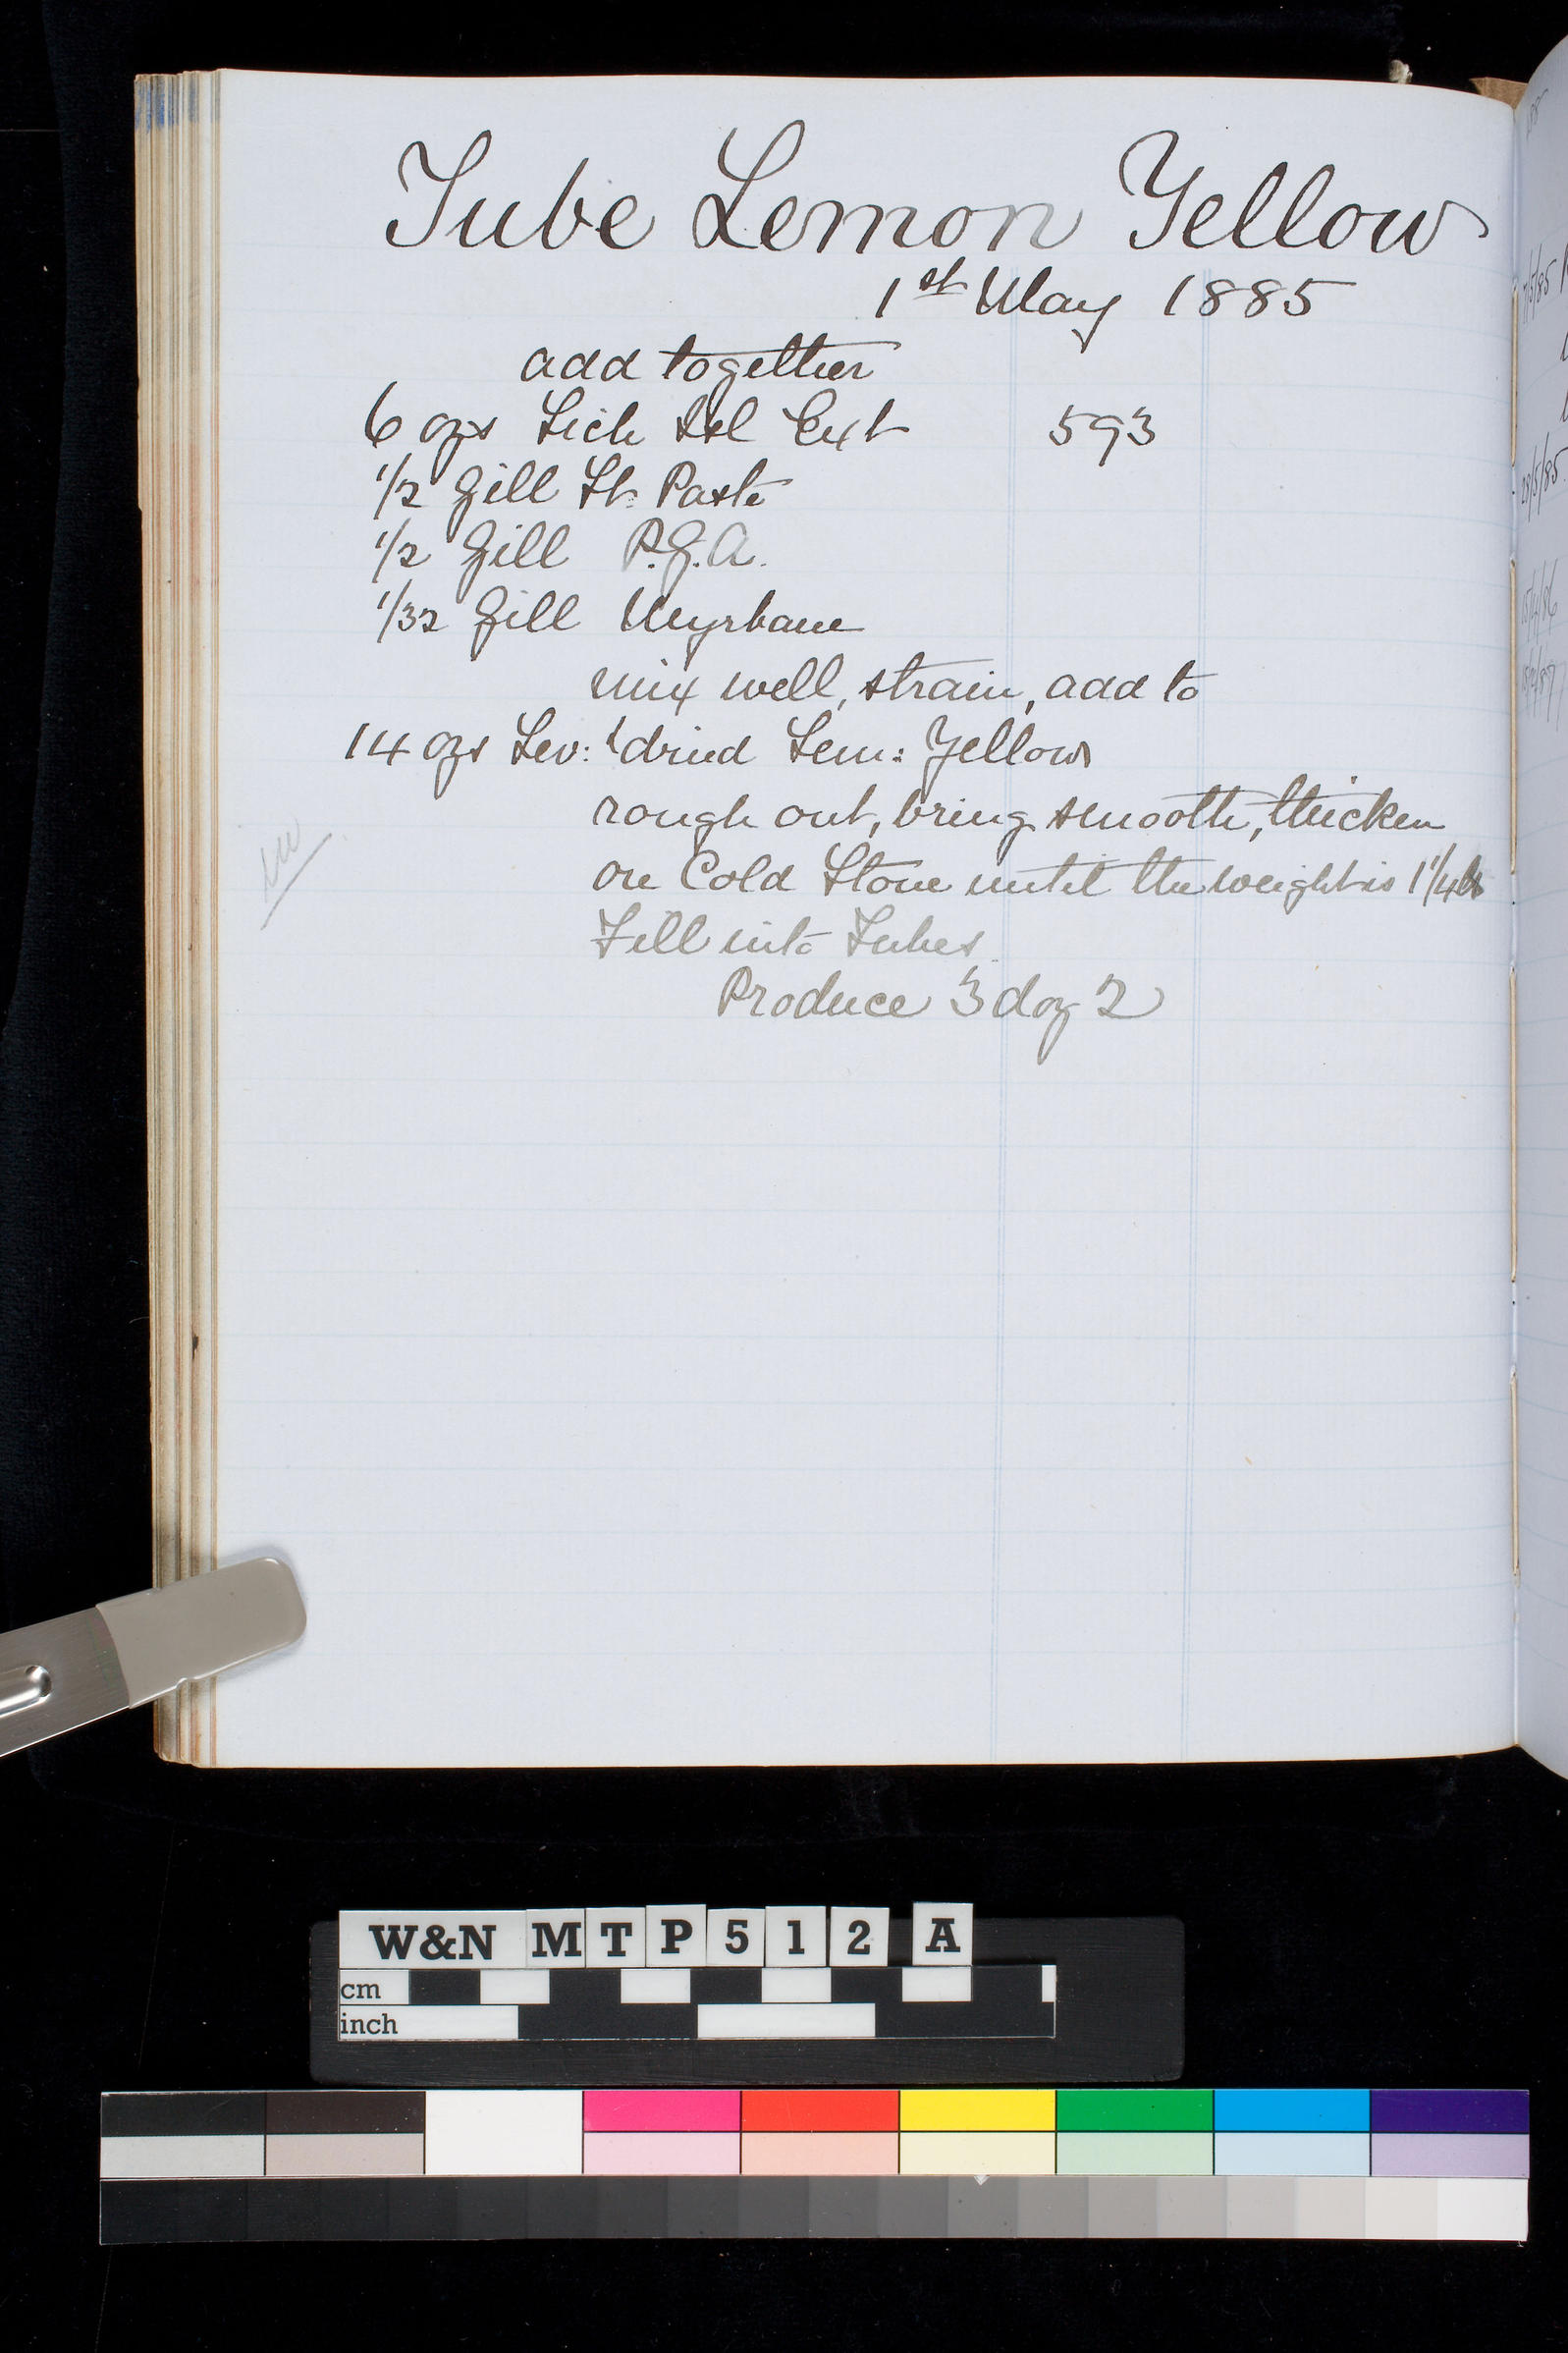 Tube Lemon Yellow
1st May 1885
add together
6 ozs Lich Isl Ext 593
1/2 Gill St. Paste
1/2 Gill P.G.A.
1/32 Gill Myrbane
mix well, strain, add to
14 ozs Lev: & dried Lem: Yellow
rough out, bring smooth, thicken
on Cold Stone until the weight is 1 1/4 lb
Fill into Tubes.
Produce 3 doz 2
7/5/85
28/5/85
W&N MTP512 A
cm
inch